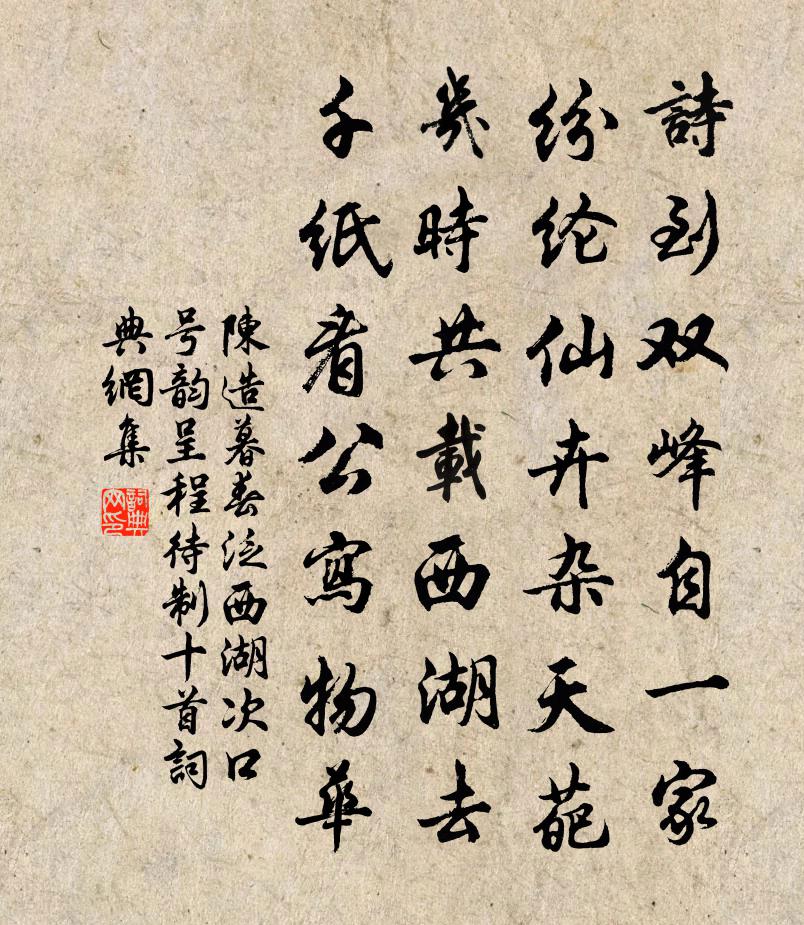 詩到双峰自一家
纷纶仙卉杂天葩
幾時共載西湖去
千紙看公寫物華
陳造暮春泛西湖次口
号韵呈程待制十首詞
典網集
詞典
网印